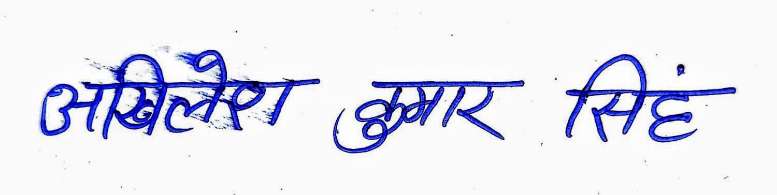 अखिलेश कुमार सिहं